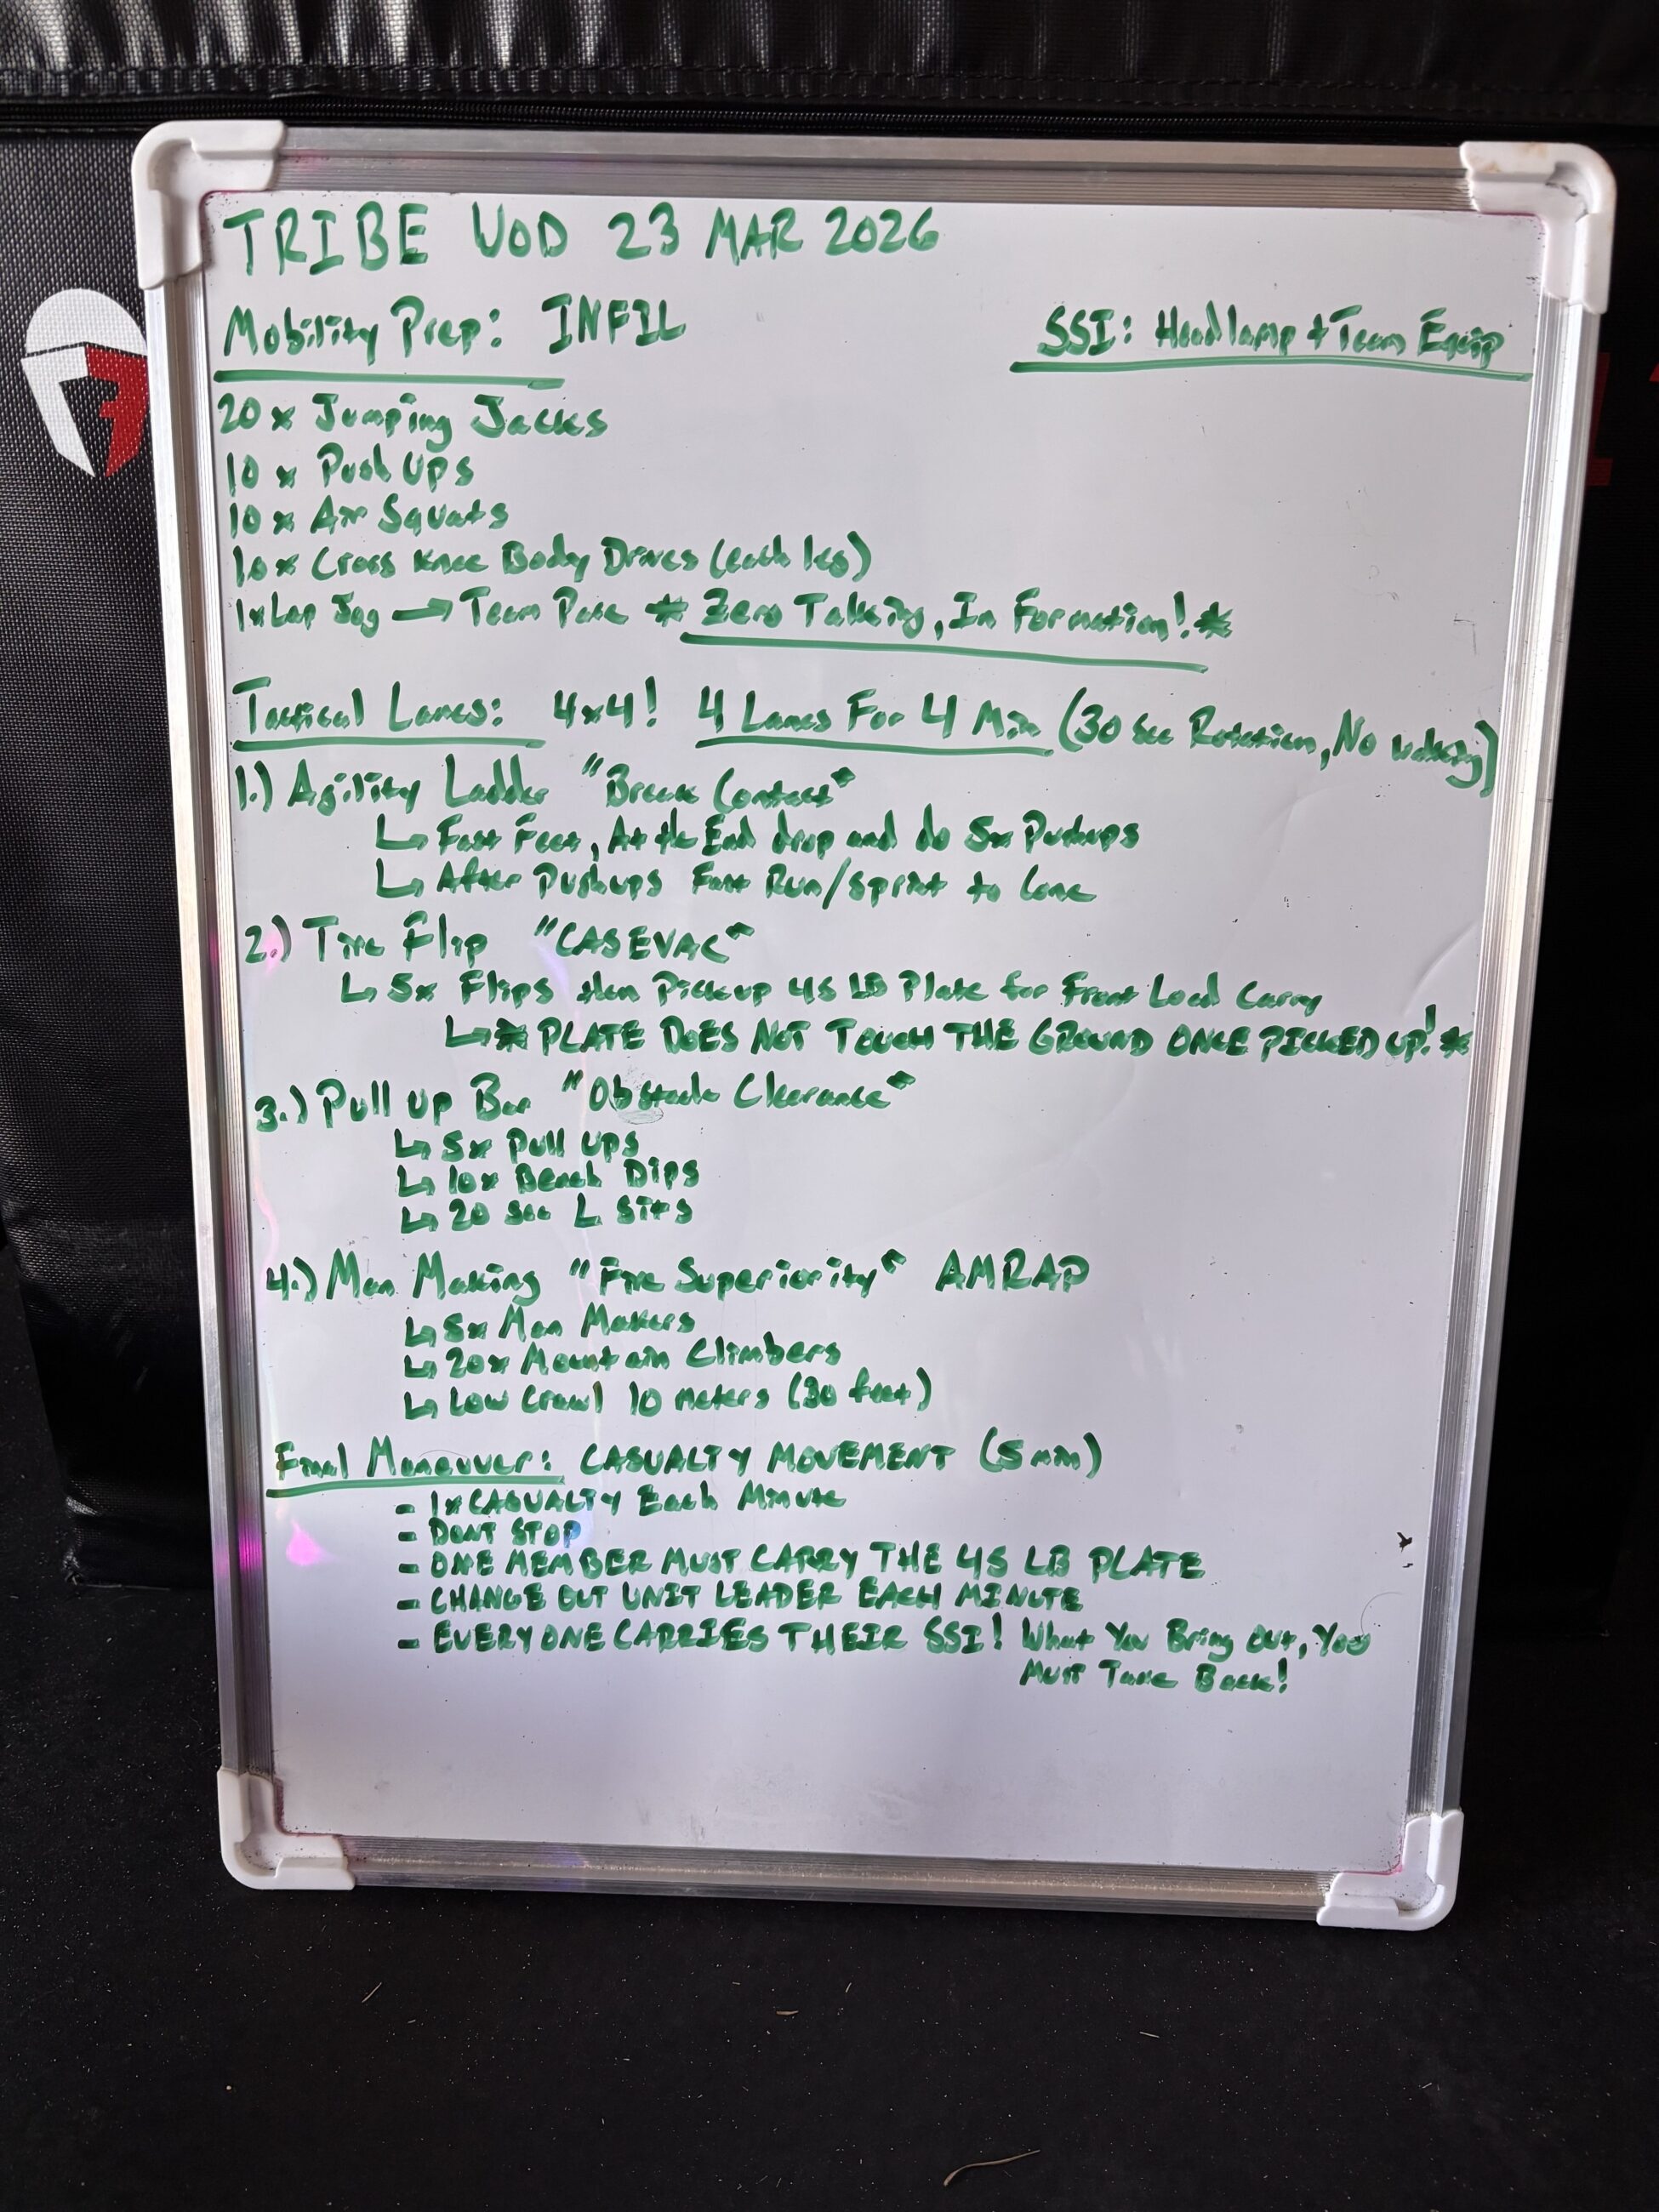 TRIBE WOD 23 MAR 2026
Mobility Prep: INFIL
SSI: Headlamp + Team Equip
20x Jumping Jacks
10x Push Ups
10x Air Squats
10x Cross Knee Body Drives (each leg)
1x Lap Jog → Team Pace * Zero Talking, In Formation! *
Tactical Lanes: 4x4! 4 Lanes For 4 Min (30 Sec Rotation, No Walking)
1.) Agility Ladder "Break Contact"
↳ Fast Feet, At the End drop and do 5x Pushups
↳ After Pushups Fast Run/Sprint to Cone
2.) Tire Flip "CASEVAC"
↳ 5x Flips then Pickup 45 LB Plate for Front Load Carry
↳ * PLATE DOES NOT TOUCH THE GROUND ONCE PICKED UP! *
3.) Pull up Bar "Obstacle Clearance"
↳ 5x Pull ups
↳ 10x Bench Dips
↳ 20 sec L Sits
4.) Man Making "Fire Superiority" AMRAP
↳ 5x Man Makers
↳ 20x Mountain Climbers
↳ Low Crawl 10 meters (30 feet)
Final Maneuver: CASUALTY MOVEMENT (5 min)
- 1x CASUALTY Each Minute
- DONT STOP
- ONE MEMBER MUST CARRY THE 45 LB PLATE
- CHANGE OUT UNIT LEADER EACH MINUTE
- EVERYONE CARRIES THEIR SSI! What You Bring Out, You
Must Take Back!